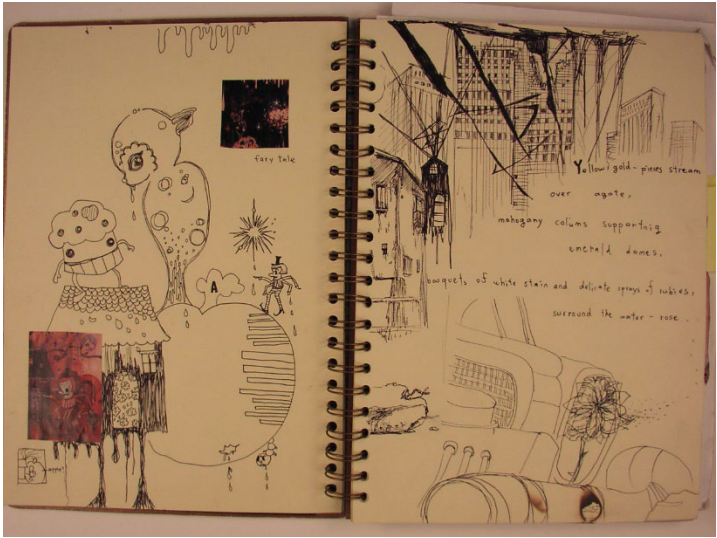 fary tale
A
Yellow/gold-pieses stream
over agate,
mahogany colums supportnig
emerald domes,
bouquets of white stain and delicate sprays of rubies,
surround the water-rose.